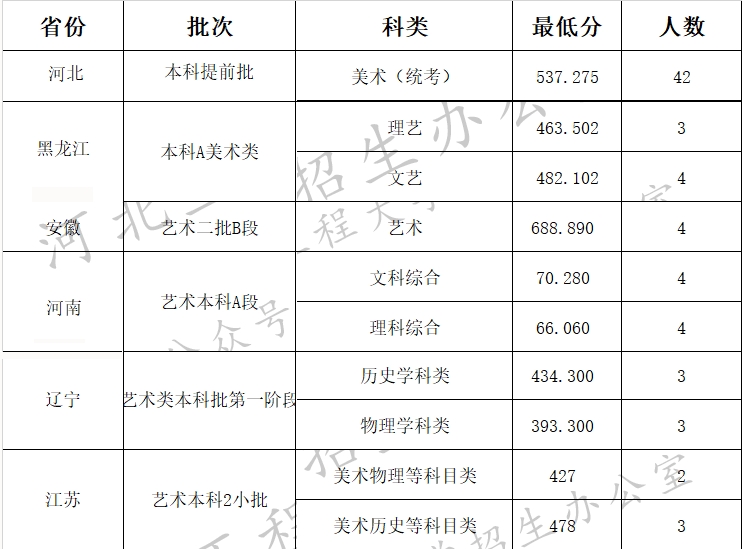 省份 批次 科类 最低分 人数
河北 本科提前批 美术（统考） 537.275 42
黑龙江 本科A美术类 理艺 463.502 3
文艺 482.102 4
安徽 艺术二批B段 艺术 688.890 4
河南 艺术本科A段 文科综合 70.280 4
理科综合 66.060 4
辽宁 艺术类本科批第一阶段 历史学科类 434.300 3
物理学科类 393.300 3
江苏 艺术本科2小批 美术物理等科目类 427 2
美术历史等科目类 478 3